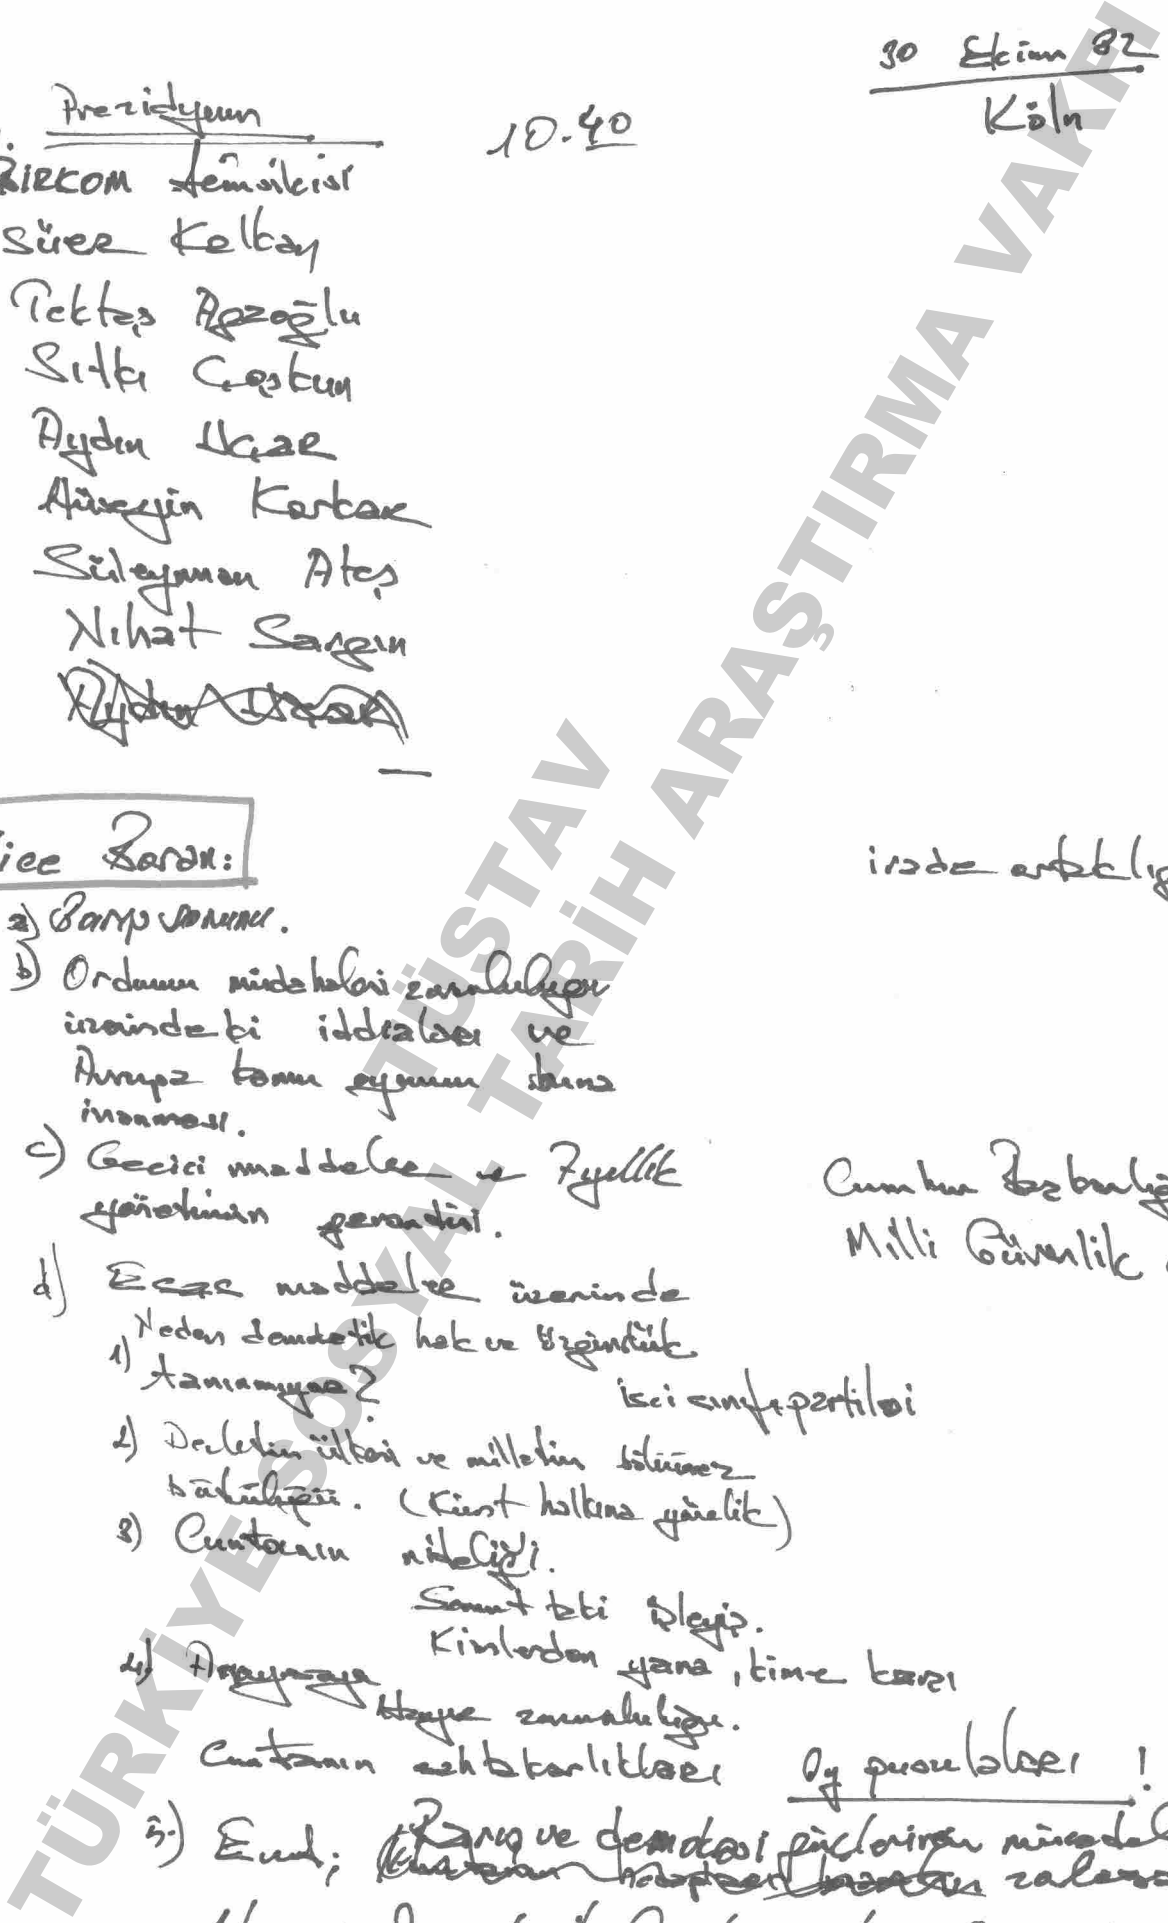 30 Ekim 82
Köln
Prezidyum
10.40
BİRKOM temsilcisi
Sürer Kelkay
Tektaş Ağaoğlu
Sıtkı Coşkun
Aydın Uçar
Hüseyin Karkar
Süleyman Ateş
Nihat Sargın
Aydın Uçar
Baran:
irade ortaklığ
a) Barış sorunu.
b) Ordunun müdahalesi zorunluluğu
üzerindeki iddiaları ve
Avrupa kamu oyunun buna
inanması.
c) Geçici maddeler ve 7 yıllık
yönetimin garantisi.
Cumhur Başkanlığ
Milli Güvenlik
d) Esas maddeler üzerinde
1) Neden demokratik hak ve özgürlük
tanınmıyor?
işci sınıfı partileri
2) Devletin ülkesi ve milletin bölünmez
bütünlüğü. (Kürt halkına yönelik)
3) Cuntanın niteliği.
Somutteki işleyiş.
Kimlerden yana, kime karşı
4) Anayasaya
Hayır zorunluluğu.
Cuntanın sahtekarlıkları Oy pusulaları !
5.) Evet; Barış ve demokrasi güçlerinin mücadel
TÜSTAV
TÜRKİYE SOSYAL TARİH ARAŞTIRMA VAKFI